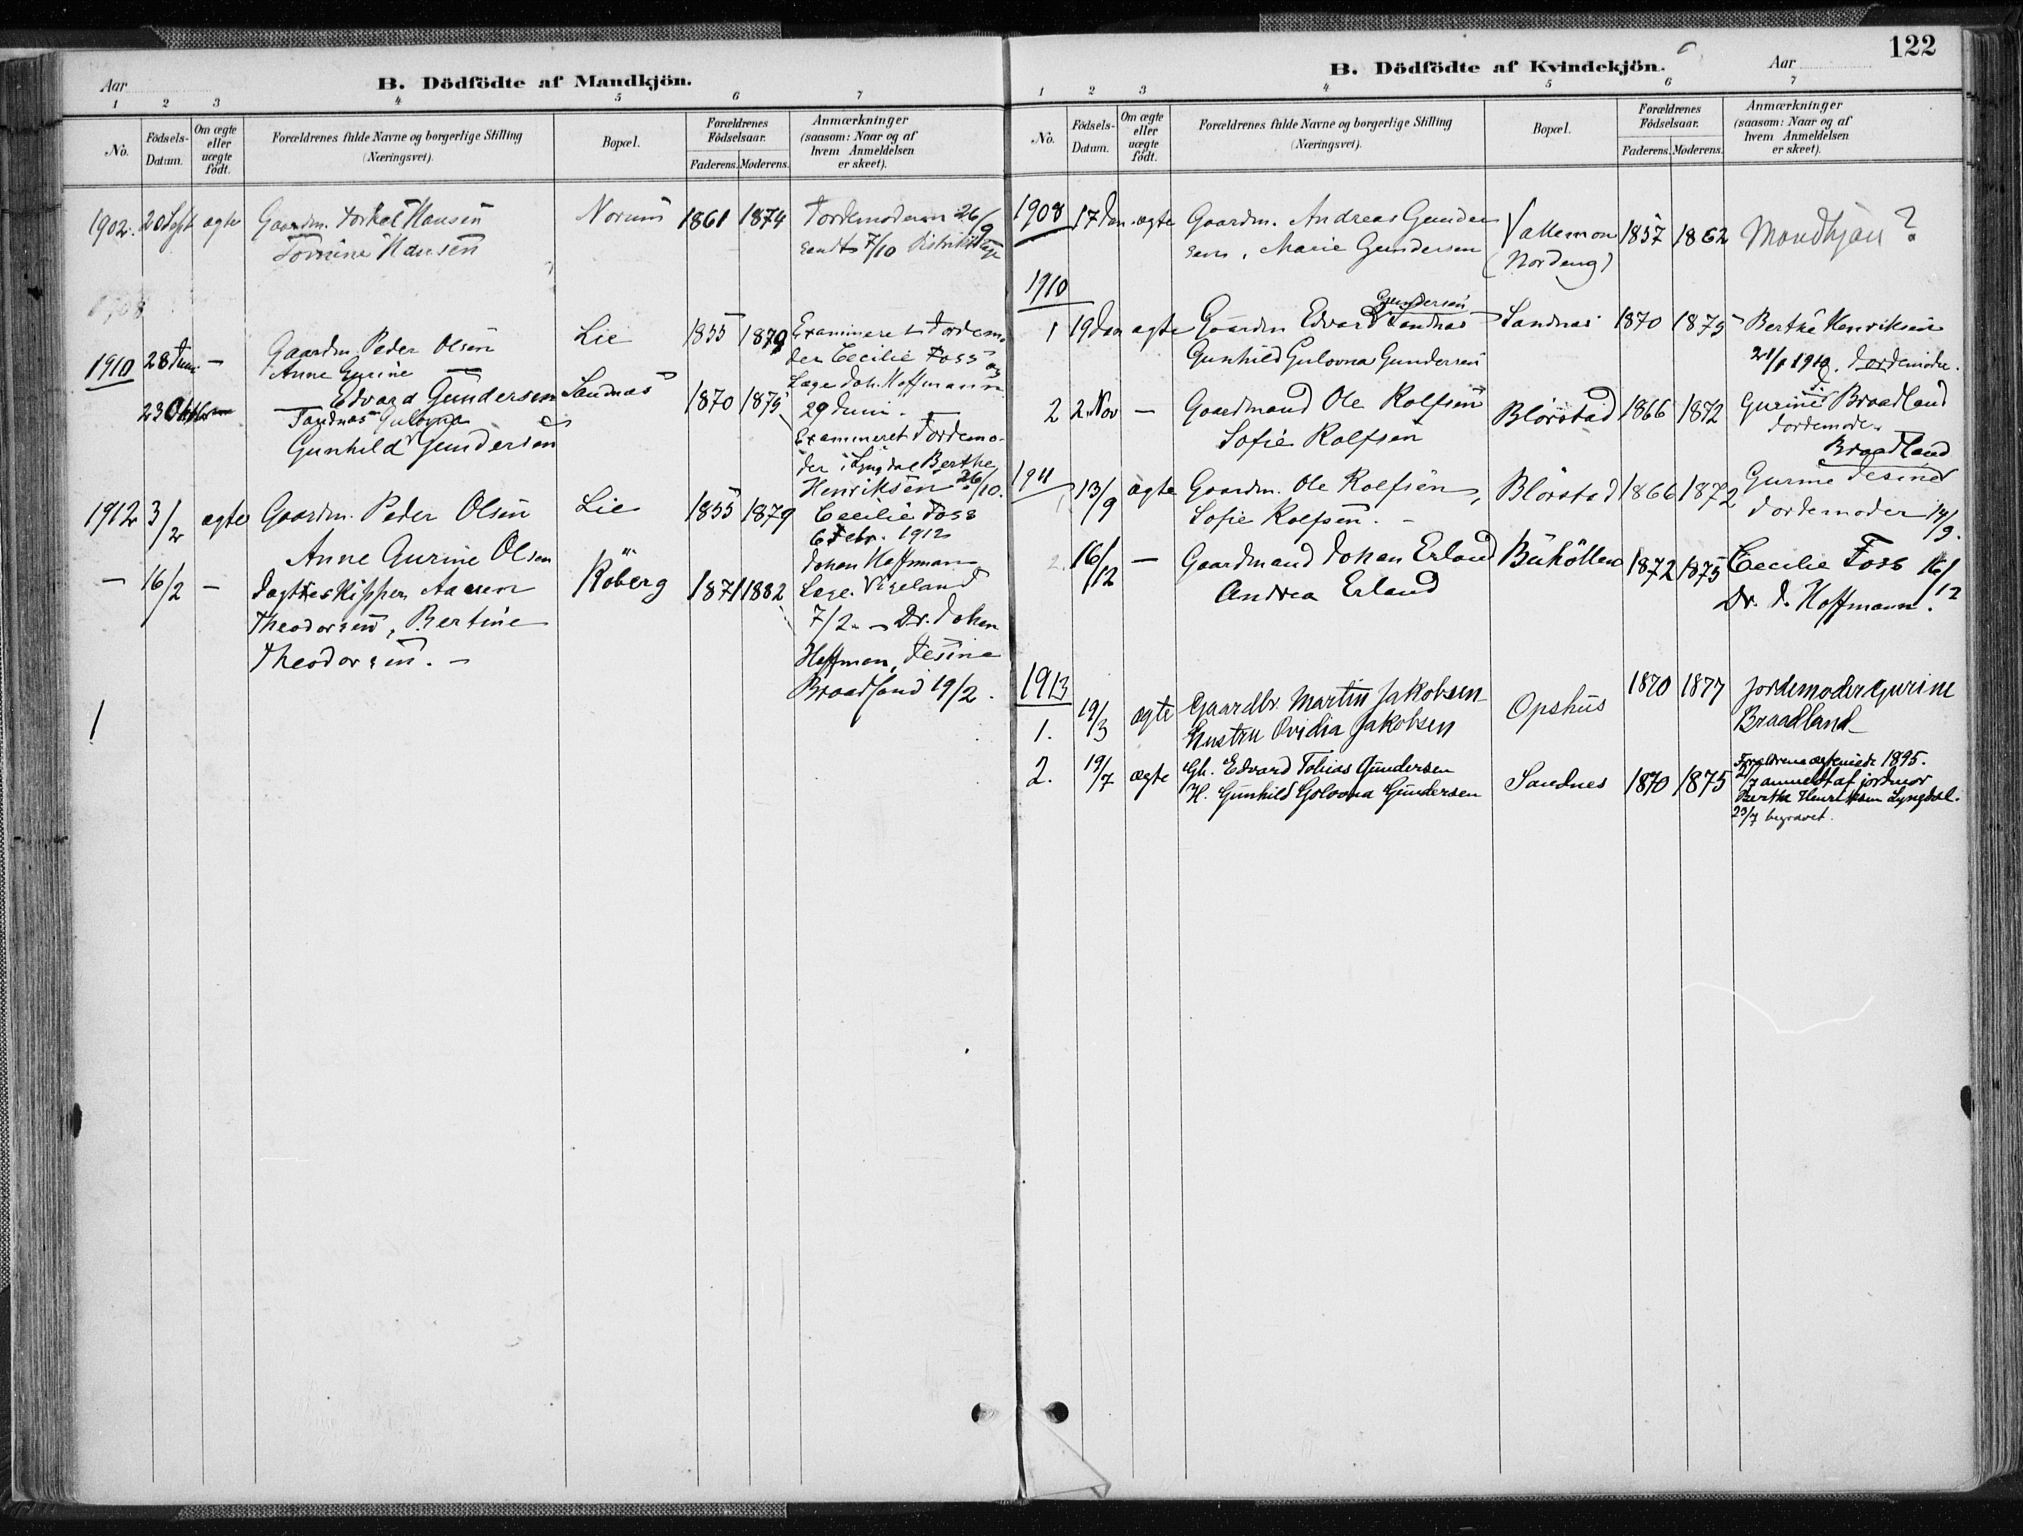 Aar
B. Dödfödte af Mandkjön.
1 2 3 4 5 6 7
No.
Födsels-Datum.
Om ægte eller uægte födt.
Forældrenes fulde Navne og borgerlige Stilling (Næringsvei).
Bopæl.
Forældrenes Födselsaar.
Faderens. Moderens.
Anmærkninger (saasom: Naar og af hvem Anmeldelsen er skeet).
1902. 20 Sept ægte Gaardm. Torkel Hansen Norum 1861 1874 Jordemoderen 26/9
Tomine Hansen sendts 7/10
1908
Gaardm Peder Olsen Lie 1855 1879 Examineret Jordemo
1910 28 Juni — Anne Gurine der Cecilie Foss og
Læge Joh. Hoffmann
29 Juni.
23 Oktbr — Edvard Gundersen Sandnæs 1870 1875
Sandnæs Gulovna
Gunhild Gundersen
Examineret Jordemo-
der i Lyngdal Berthe
Henriksen 26/10.
1912 3/2 ægte Gaardm. Peder Olsen Lie 1855 1879 Cecilie Foss
Anne Gurine Olsen 6 Febr. 1912
Johan Hoffmann
— 16/2 — Jagtskipper Aanen Röberg 1871 1882 Læge. Vigeland
Theodorsen, Bertine 7/2. — Dr. Johan
Theodorsen. — Hoffman, Jesine
Braadland 19/2.
1
122
B. Dödfödte af Kvindekjön.
Aar
1 2 3 4 5 6 7
No.
Födsels-Datum.
Om ægte eller uægte födt.
Forældrenes fulde Navne og borgerlige Stilling (Næringsvei).
Bopæl.
Forældrenes Födselsaar.
Faderens. Moderens.
Anmærkninger (saasom: Naar og af hvem Anmeldelsen er skeet).
1908 17 Jan ægte Gaardm. Andreas Gunder Vallemon 1857 1862 Mandkjøn ?
sen, Marie Gundersen (Nordeng)
1910
Gundersen
1 19 Jan ægte Gaardm Edvard Sandnæs Sandnæs 1870 1875 Berthe Henriksen
Gunhild Gulovna Gundersen 21/1 1910. Jordemoder.
2 2 Nov — Gaardmand Ole Rolfsen Blörstad 1866 1872 Gurine Braadland
Sofie Rolfsen Jordemoder
Braadland
1911 13/9 ægte Gaardm. Ole Rolfsen, Blörstad 1866 1872 Gurine Jesine
Sofie Rolfsen. — Jordemoder 14/9.
2. 16/12 — Gaardmand Johan Erland Buhöllen 1872 1875 Cecilie Foss 16/12
Andrea Erland Dr. J. Hoffmann.
1913
1. 19/3 ægte Gaardbr. Martin Jakobsen Opshus 1870 1877 Jordemoder Gurine
Hustru Ovidia Jakobsen Braadland
2. 19/7 ægte Gb. Edvard Tobias Gundersen Sandnes 1870 1875 Forældrene ægteviede 1895.
H. Gunhild Golovna Gundersen 21/7 anmeldt af jordmor
Berthe Henriksen Lyngdal.
23/7 begravet.